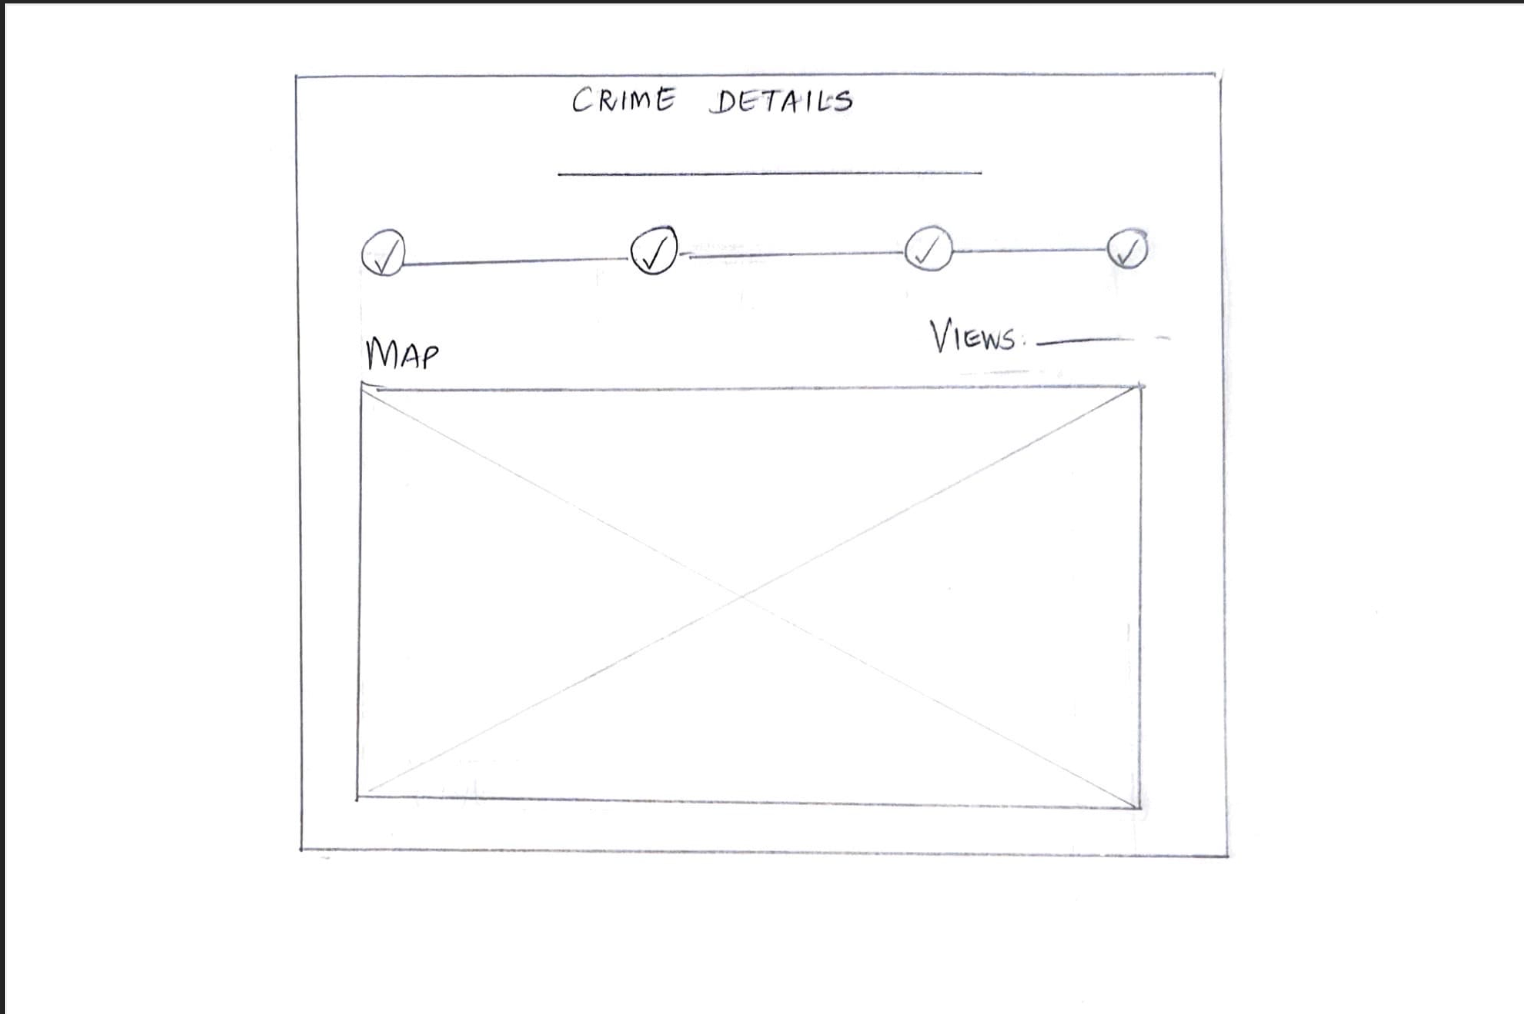 CRIME DETAILS
MAP
VIEWS: